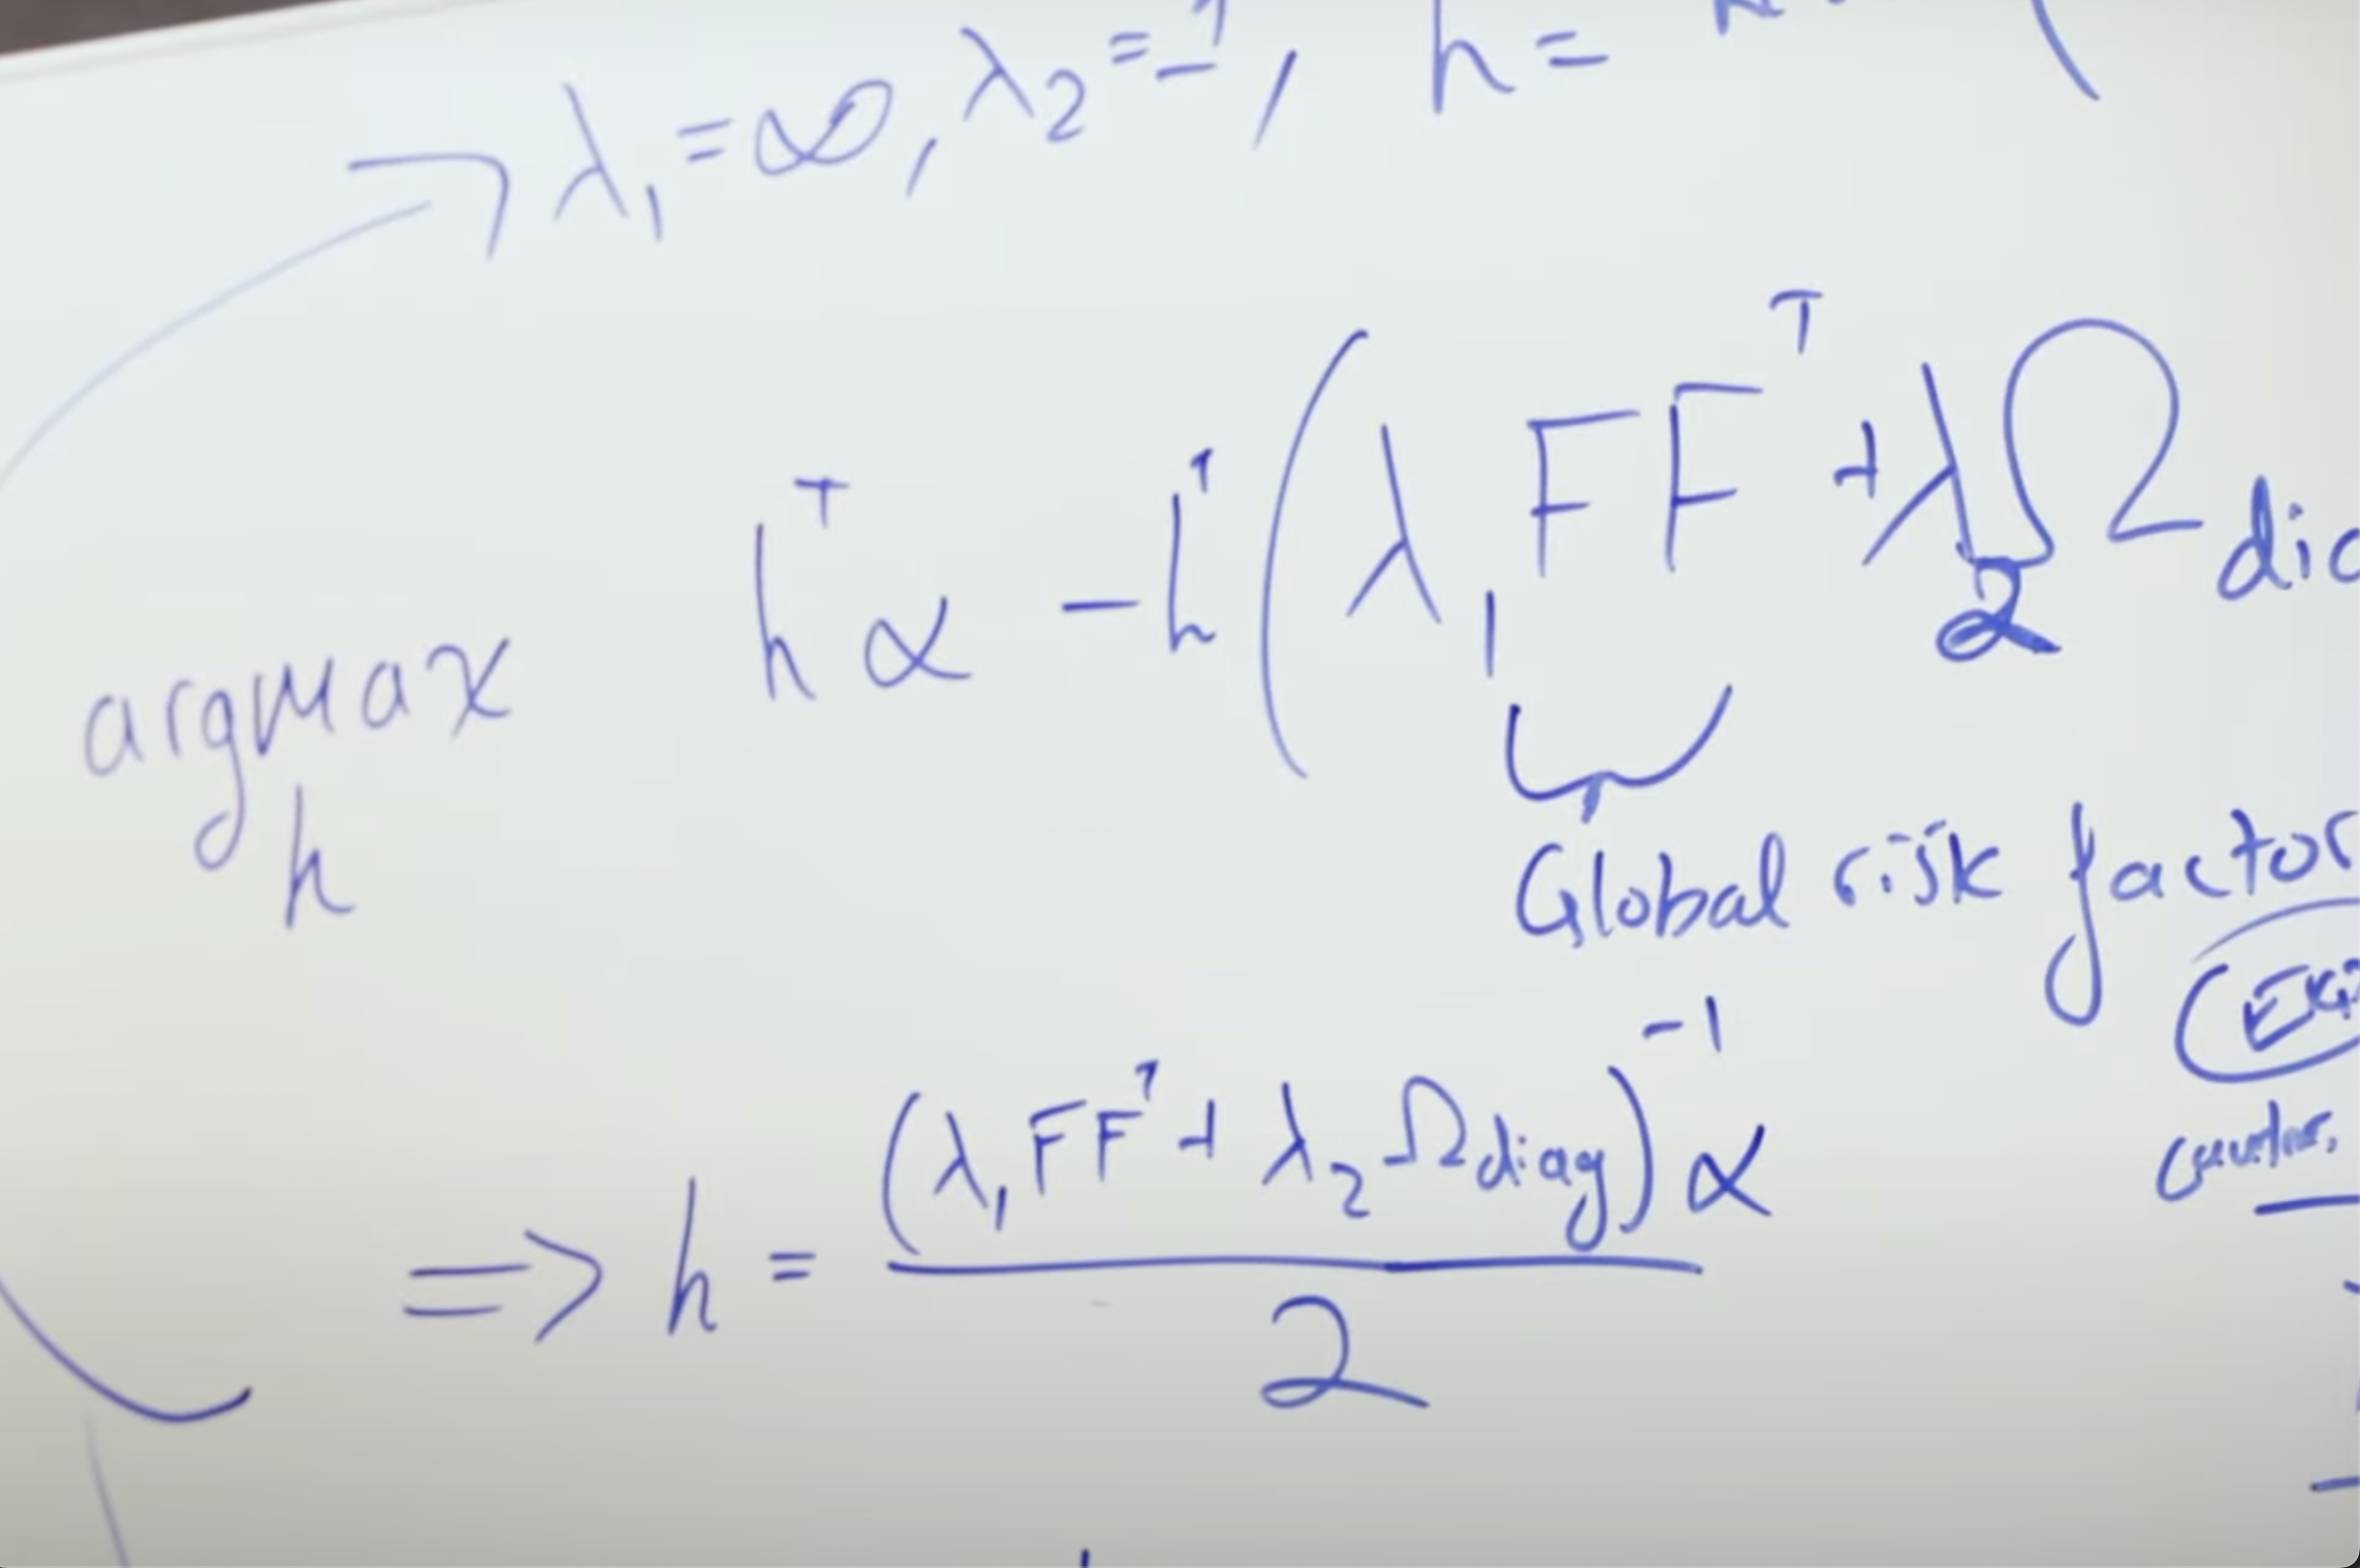 λ₁ = ∞, λ₂ = 1, h =
argmax h hᵀα - hᵀ(λ₁FFᵀ + λ₂Ω
Global risk factor
⇒ h = (λ₁FFᵀ + λ₂Ωdiag)⁻¹α / 2